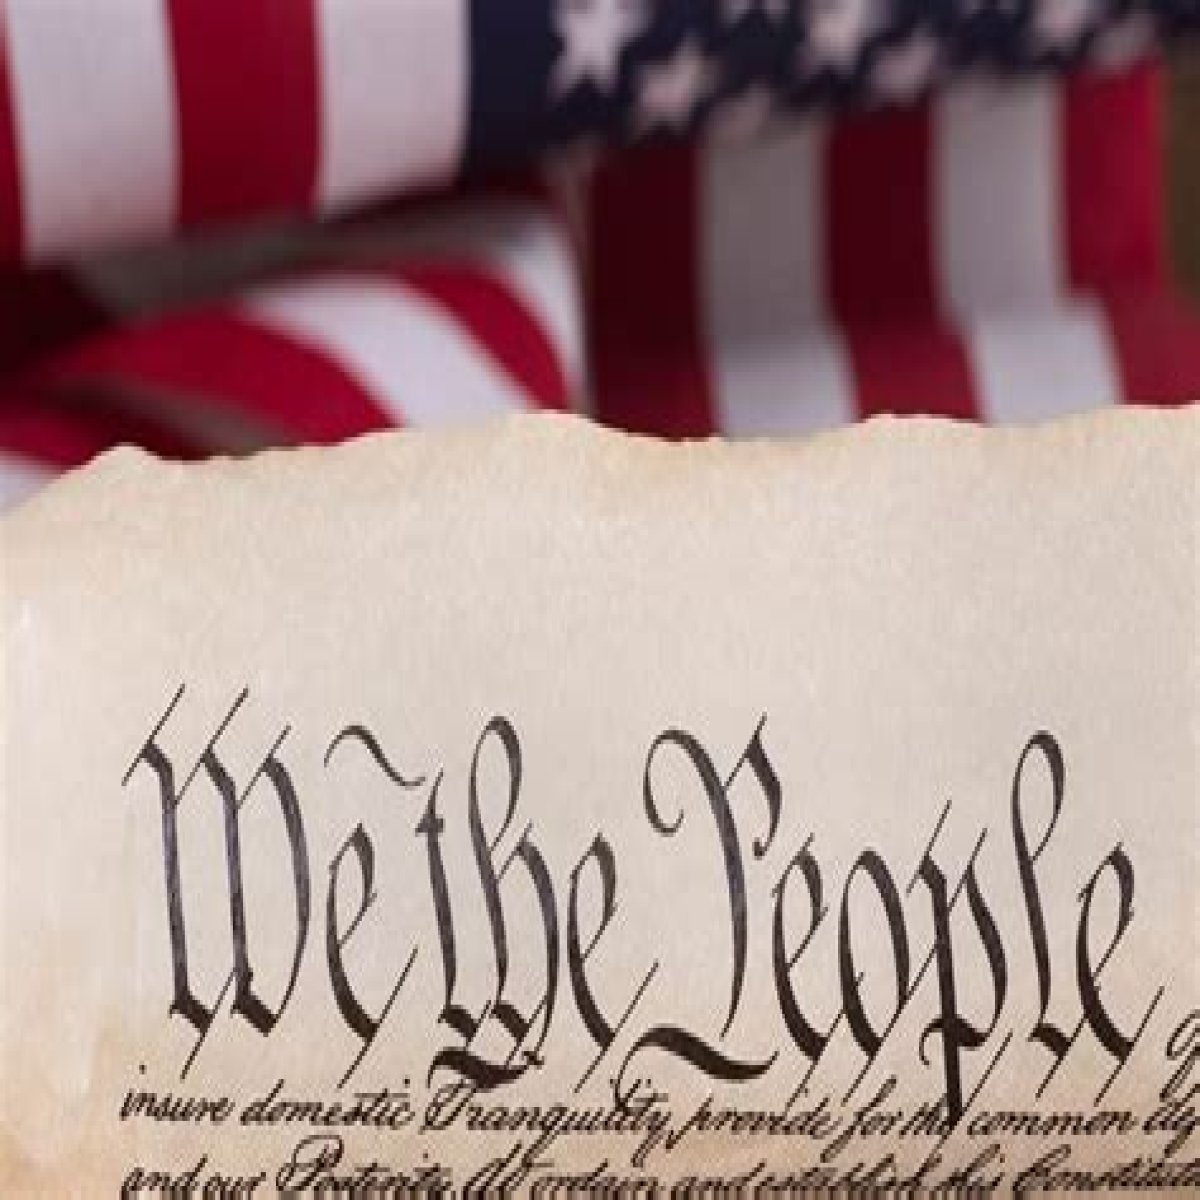 We the People of
insure domestic Tranquility, provide for the common
and our Posterity, do ordain and establish this Constitut